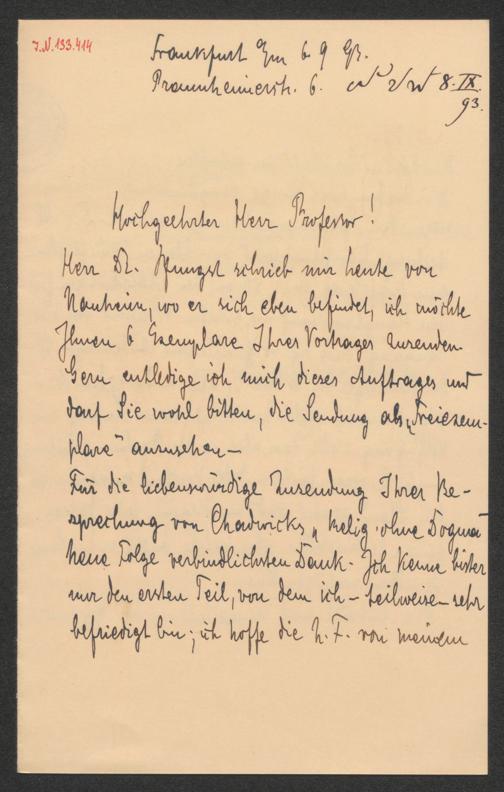 J.N. 133.414
Frankfurt a/m 6 9 93.
Praunheimerstr. 6. 8. IX.
93.
Hochgeehrter Herr Professor!
Herr Dr. Pfungst schrieb mir heute von
Nauheim, wo er sich eben befindet, ich möchte
Ihnen 6 Exemplare Ihres Vortrages zusenden.
Gern entledige ich mich dieses Auftrages und
darf Sie wohl bitten, die Sendung als „Freiexem-
plare" anzusehen –
Für die liebenswürdige Zusendung Ihrer Be-
sprechung von Chadwicks „Relig. ohne Dogma
verbindlichsten Dank. Ich kenne bisher
nur den ersten Teil, von dem ich – teilweise – sehr
befriedigt bin; ich hoffe die h. F. von meinem